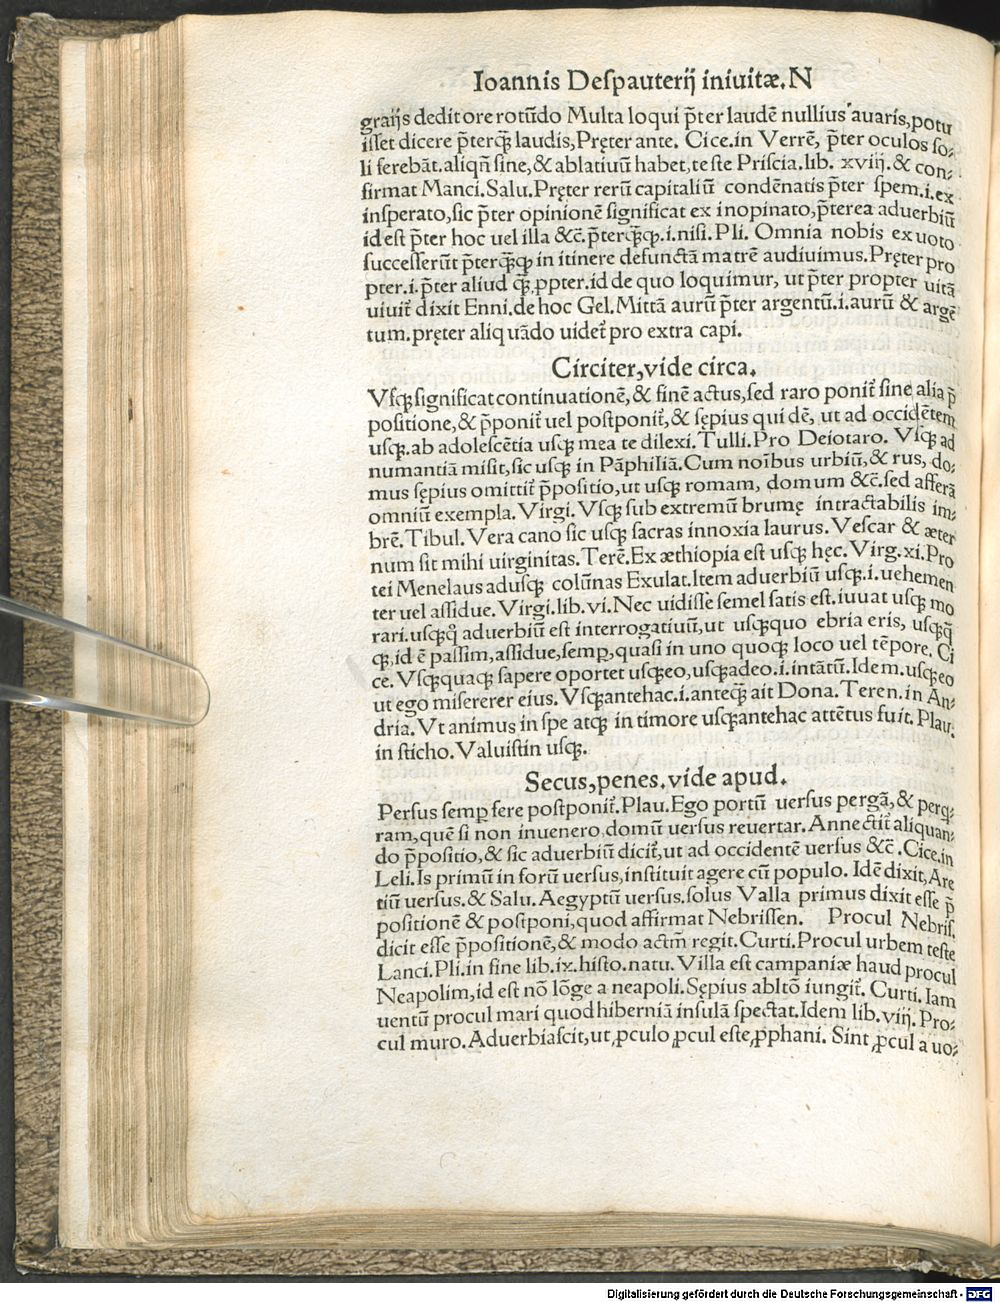 Ioannis Despauterij iniuitæ.N
graijs dedit ore rotūdo Multa loqui p̄ter laudē nullius auaris,potu
iſſet dicere p̄terq̄ꝫ laudis,Pręter ante. Cice.in Verrē, p̄ter oculos ſo⸗
li ferebāt.aliqn̄ ſine,& ablatiuū habet,teſte Priſcia.lib. xviij.& con⸗
firmat Manci.Salu.Pręter rerū capitaliū condēnatis p̄ter ſpem.i.ex
inſperato,ſic p̄ter opinionē ſignificat ex inopinato,p̄terea aduerbiū
id eſt p̄ter hoc uel illa &c̄.p̄terq̄ꝫꝙ.i.niſi.Pli. Omnia nobis ex uoto
ſucceſſerūt p̄terq̄ꝫꝙ in itinere defunctā matrē audiuimus.Pręter pro
pter.i.p̄ter aliud q̄ꝫ ꝓpter.id de quo loquimur, ut p̄ter propter uitā
uiuit̄ dixit Enni.de hoc Gel.Mittā aurū p̄ter argentū.i.aurū & argē
tum.pręter aliquādo uidet̄ pro extra capi.
Circiter,vide circa.
Vſqꝫ ſignificat continuationē,& finē actus,ſed raro ponit̄ ſine alia p̄
poſitione,& p̄ponit̄ uel poſtponit̄,& ſępius qui dē, ut ad occidētem
uſqꝫ.ab adoleſcētia uſqꝫ mea te dilexi.Tulli.Pro Deiotaro. Vſqꝫ ad
numantiā miſit,ſic uſqꝫ in Pāphiliā.Cum noībus urbiū,& rus, do⸗
mus ſępius omittit̄ p̄poſitio,ut uſqꝫ romam, domum &c̄.ſed afferā
omniū exempla.Virgi.Vſqꝫ ſub extremū brumę intractabilis im⸗
brē.Tibul.Vera cano ſic uſqꝫ ſacras innoxia laurus.Veſcar & æter
num ſit mihi uirginitas.Terē.Ex æthiopia eſt uſqꝫ hęc.Virg.xi.Pro
tei Menelaus aduſqꝫ colūnas Exulat.Item aduerbiū uſqꝫ.i.uehemen
ter uel aſſidue.Virgi.lib.vi.Nec uidiſſe ſemel ſatis eſt.iuuat uſqꝫ mo
rari.uſqꝫq̊ aduerbiū eſt interrogatiuū,ut uſqꝫquo ebria eris, uſqꝫq̄
qꝫ,id ē paſſim,aſſidue,ſemꝑ,quaſi in uno quoqꝫ loco uel tēpore. Ci
ce.Vſqꝫquaqꝫ ſapere oportet uſqꝫeo,uſqꝫadeo.i.intātū.Idem.uſqꝫeo
ut ego miſererer eius.Vſqꝫantehac.i.anteq̄ꝫ ait Dona.Teren.in An⸗
dria.Vt animus in ſpe atqꝫ in timore uſqꝫantehac attētus fuit.Plau.
in ſticho.Valuiſtin uſqꝫ.
Secus,penes,vide apud.
Perſus ſemꝑ fere poſtponit̄.Plau.Ego portū uerſus pergā,& perq⸗
ram,quē ſi non inuenero domū uerſus reuertar.Annectit̄ aliquan⸗
do p̄poſitio,& ſic aduerbiū dicit̄,ut ad occidentē uerſus &c̄.Cice.in
Leli.Is primū in forū uerſus,inſtituit agere cū populo. Idē dixit,Are
tiū uerſus.& Salu.Aegyptū uerſus.ſolus Valla primus dixit eſſe p̄
poſitionē & poſtponi,quod affirmat Nebriſſen. Procul Nebriſ.
dicit eſſe p̄poſitionē,& modo actm̄ regit.Curti.Procul urbem teſte
Lanci.Pli.in fine lib.ix.hiſto.natu.Villa eſt campaniæ haud procul
Neapolim,id eſt nō lōge a neapoli.Sępius abltō iungit̄. Curti.Iam
uentū procul mari quod hiberniā inſulā ſpectat.Idem lib.viij.Pro⸗
cul muro.Aduerbiaſcit,ut ꝓculo ꝓcul eſte ꝓphani. Sint ꝓcul a uo⸗
Digitalisierung gefördert durch die Deutsche Forschungsgemeinschaft - DFG